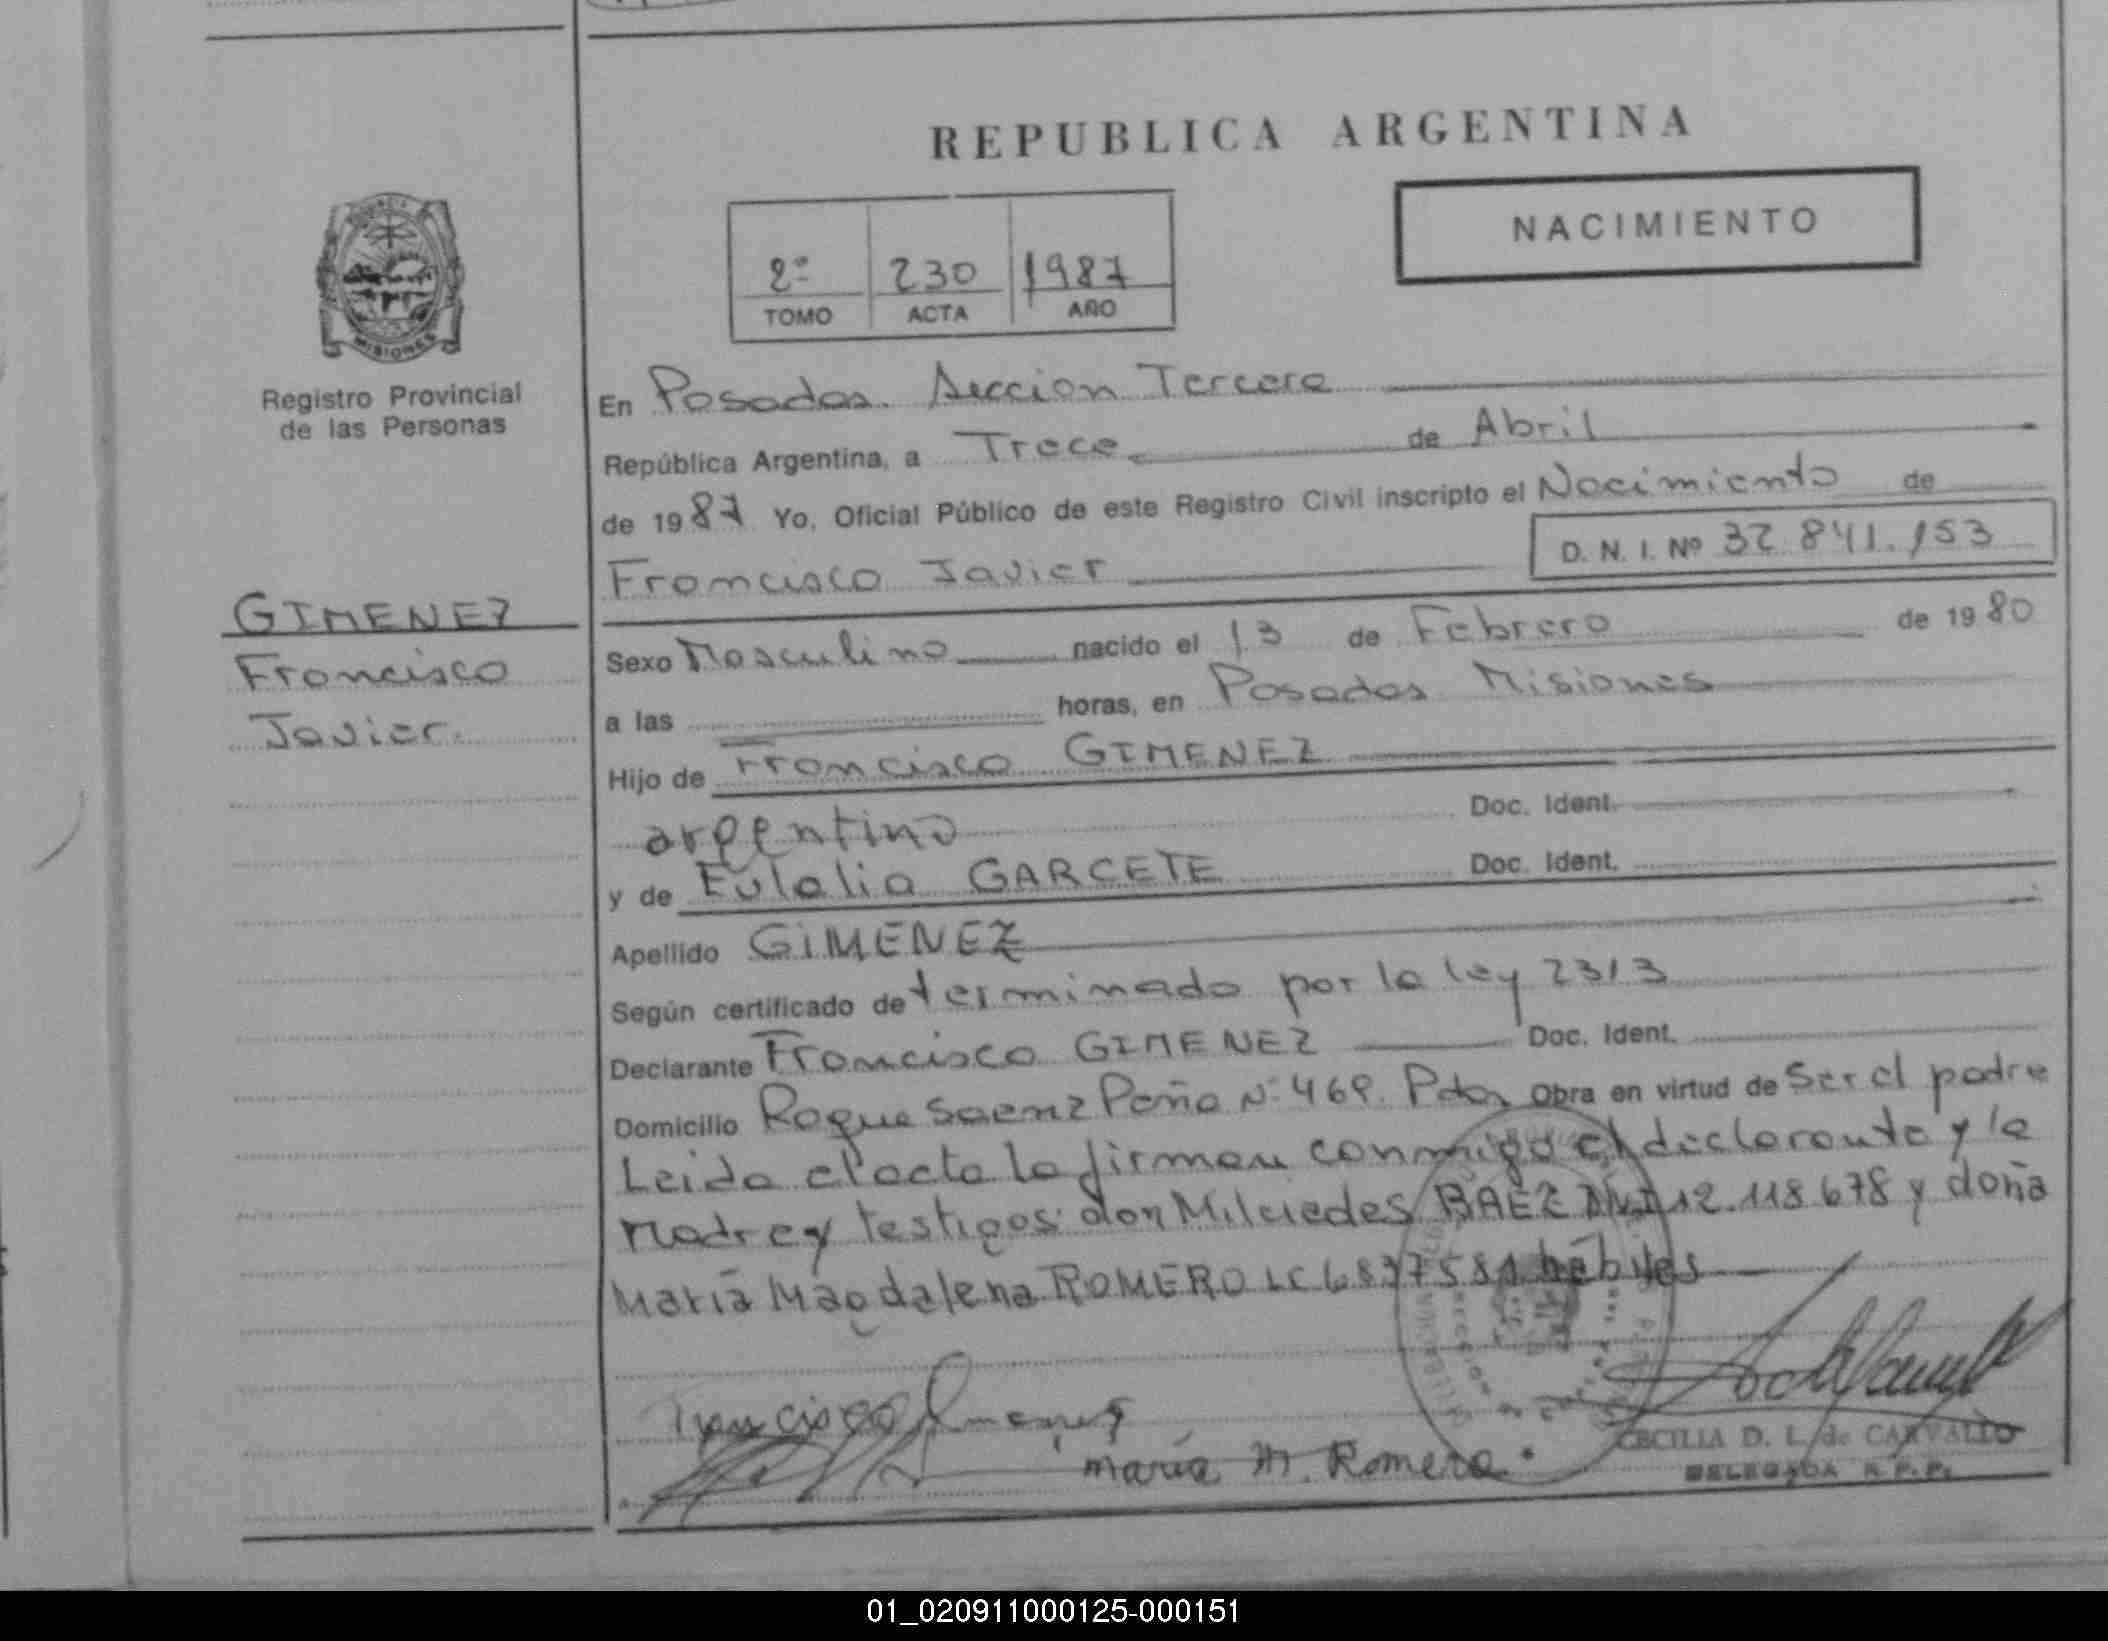 REPUBLICA ARGENTINA
NACIMIENTO
2º 230 1987
TOMO ACTA AÑO
MISIONES
Registro Provincial
de las Personas
GIMENEZ
Francisco
Javier.
En Posadas. Seccion Tercera
República Argentina, a Trece de Abril
de 1987 Yo, Oficial Público de este Registro Civil inscripto el Nacimiento de
Francisco Javier D. N. I. Nº 32.841.153
Sexo Masculino nacido el 13 de Febrero de 1980
a las horas, en Posadas Misiones
Hijo de Francisco GIMENEZ
argentino Doc. Ident.
y de Eulalia GARCETE Doc. Ident.
Apellido GIMENEZ
Según certificado de terminado por la ley 2313
Declarante Francisco GIMENEZ Doc. Ident.
Domicilio Roque Saenz Peña Nº 469. Pdas Obra en virtud de Ser el padre
Leida el acta la firman conmigo el declarante y la
Madre y testigos: don Milciedes BAEZ DNI 12.118.678 y doña
María Magdalena ROMERO LC 6.837581 hábiles
Francisco Gimenez
maría M. Romero.
CECILIA D. L. de CARVALLO
DELEGADA R. P. P.
01_020911000125-000151